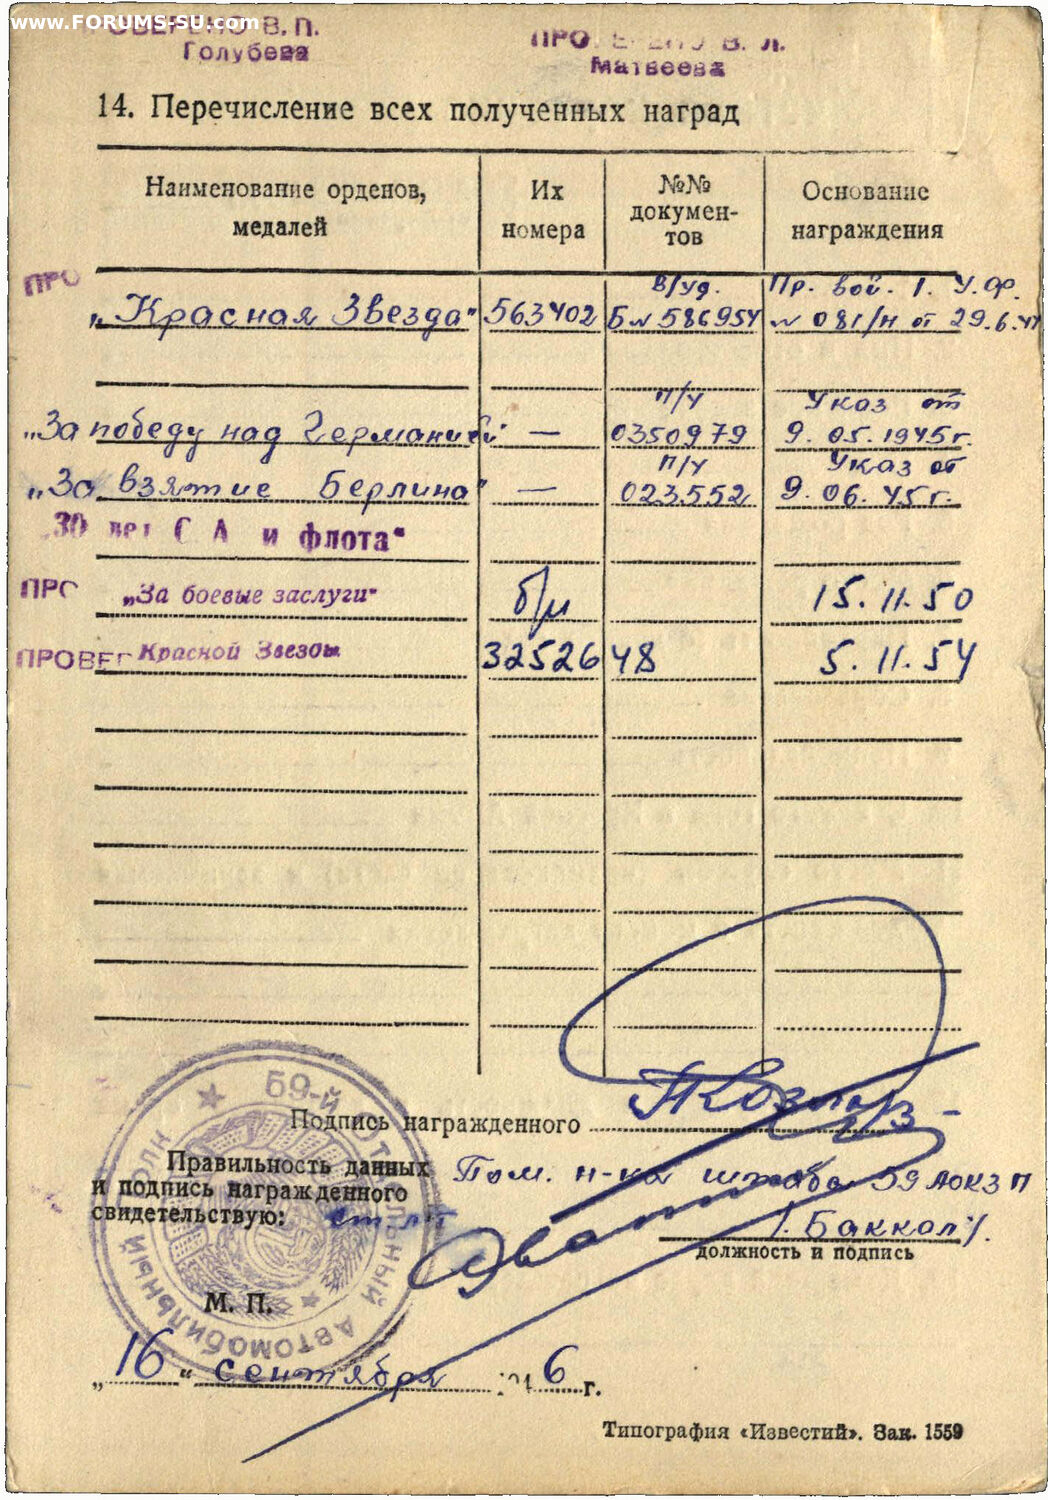 www.FORUMS-SU.com
В. П.
Голубева
В. Л.
Матвеева
14. Перечисление всех полученных наград
Наименование орденов, медалей
Их номера
№№ документов
Основание награждения
ПРО
В/уд. Пр. вой. 1. У.Ф.
„Красная Звезда" 563402 Б№ 586954 № 081/н от 29.6.44
П/У Указ от
„За победу над Германией" — 0350979 9.05.1945г.
П/У Указ от
„За взятие Берлина" — 023552 9.06.45г.
„30 лет С А и флота"
ПРО „За боевые заслуги" б/н 15.11.50
ПРОВЕР Красной Звезды 3252648 5.11.54
59-й Отдельный автомобильный полк
Подпись награжденного
Правильность данных
и подпись награжденного
свидетельствую: ст. л-т
Пом. н-ка штаба 59
/Баккал/.
должность и подпись
М. П.
„16" сентября 1946 г.
Типография «Известий». Зак. 1559